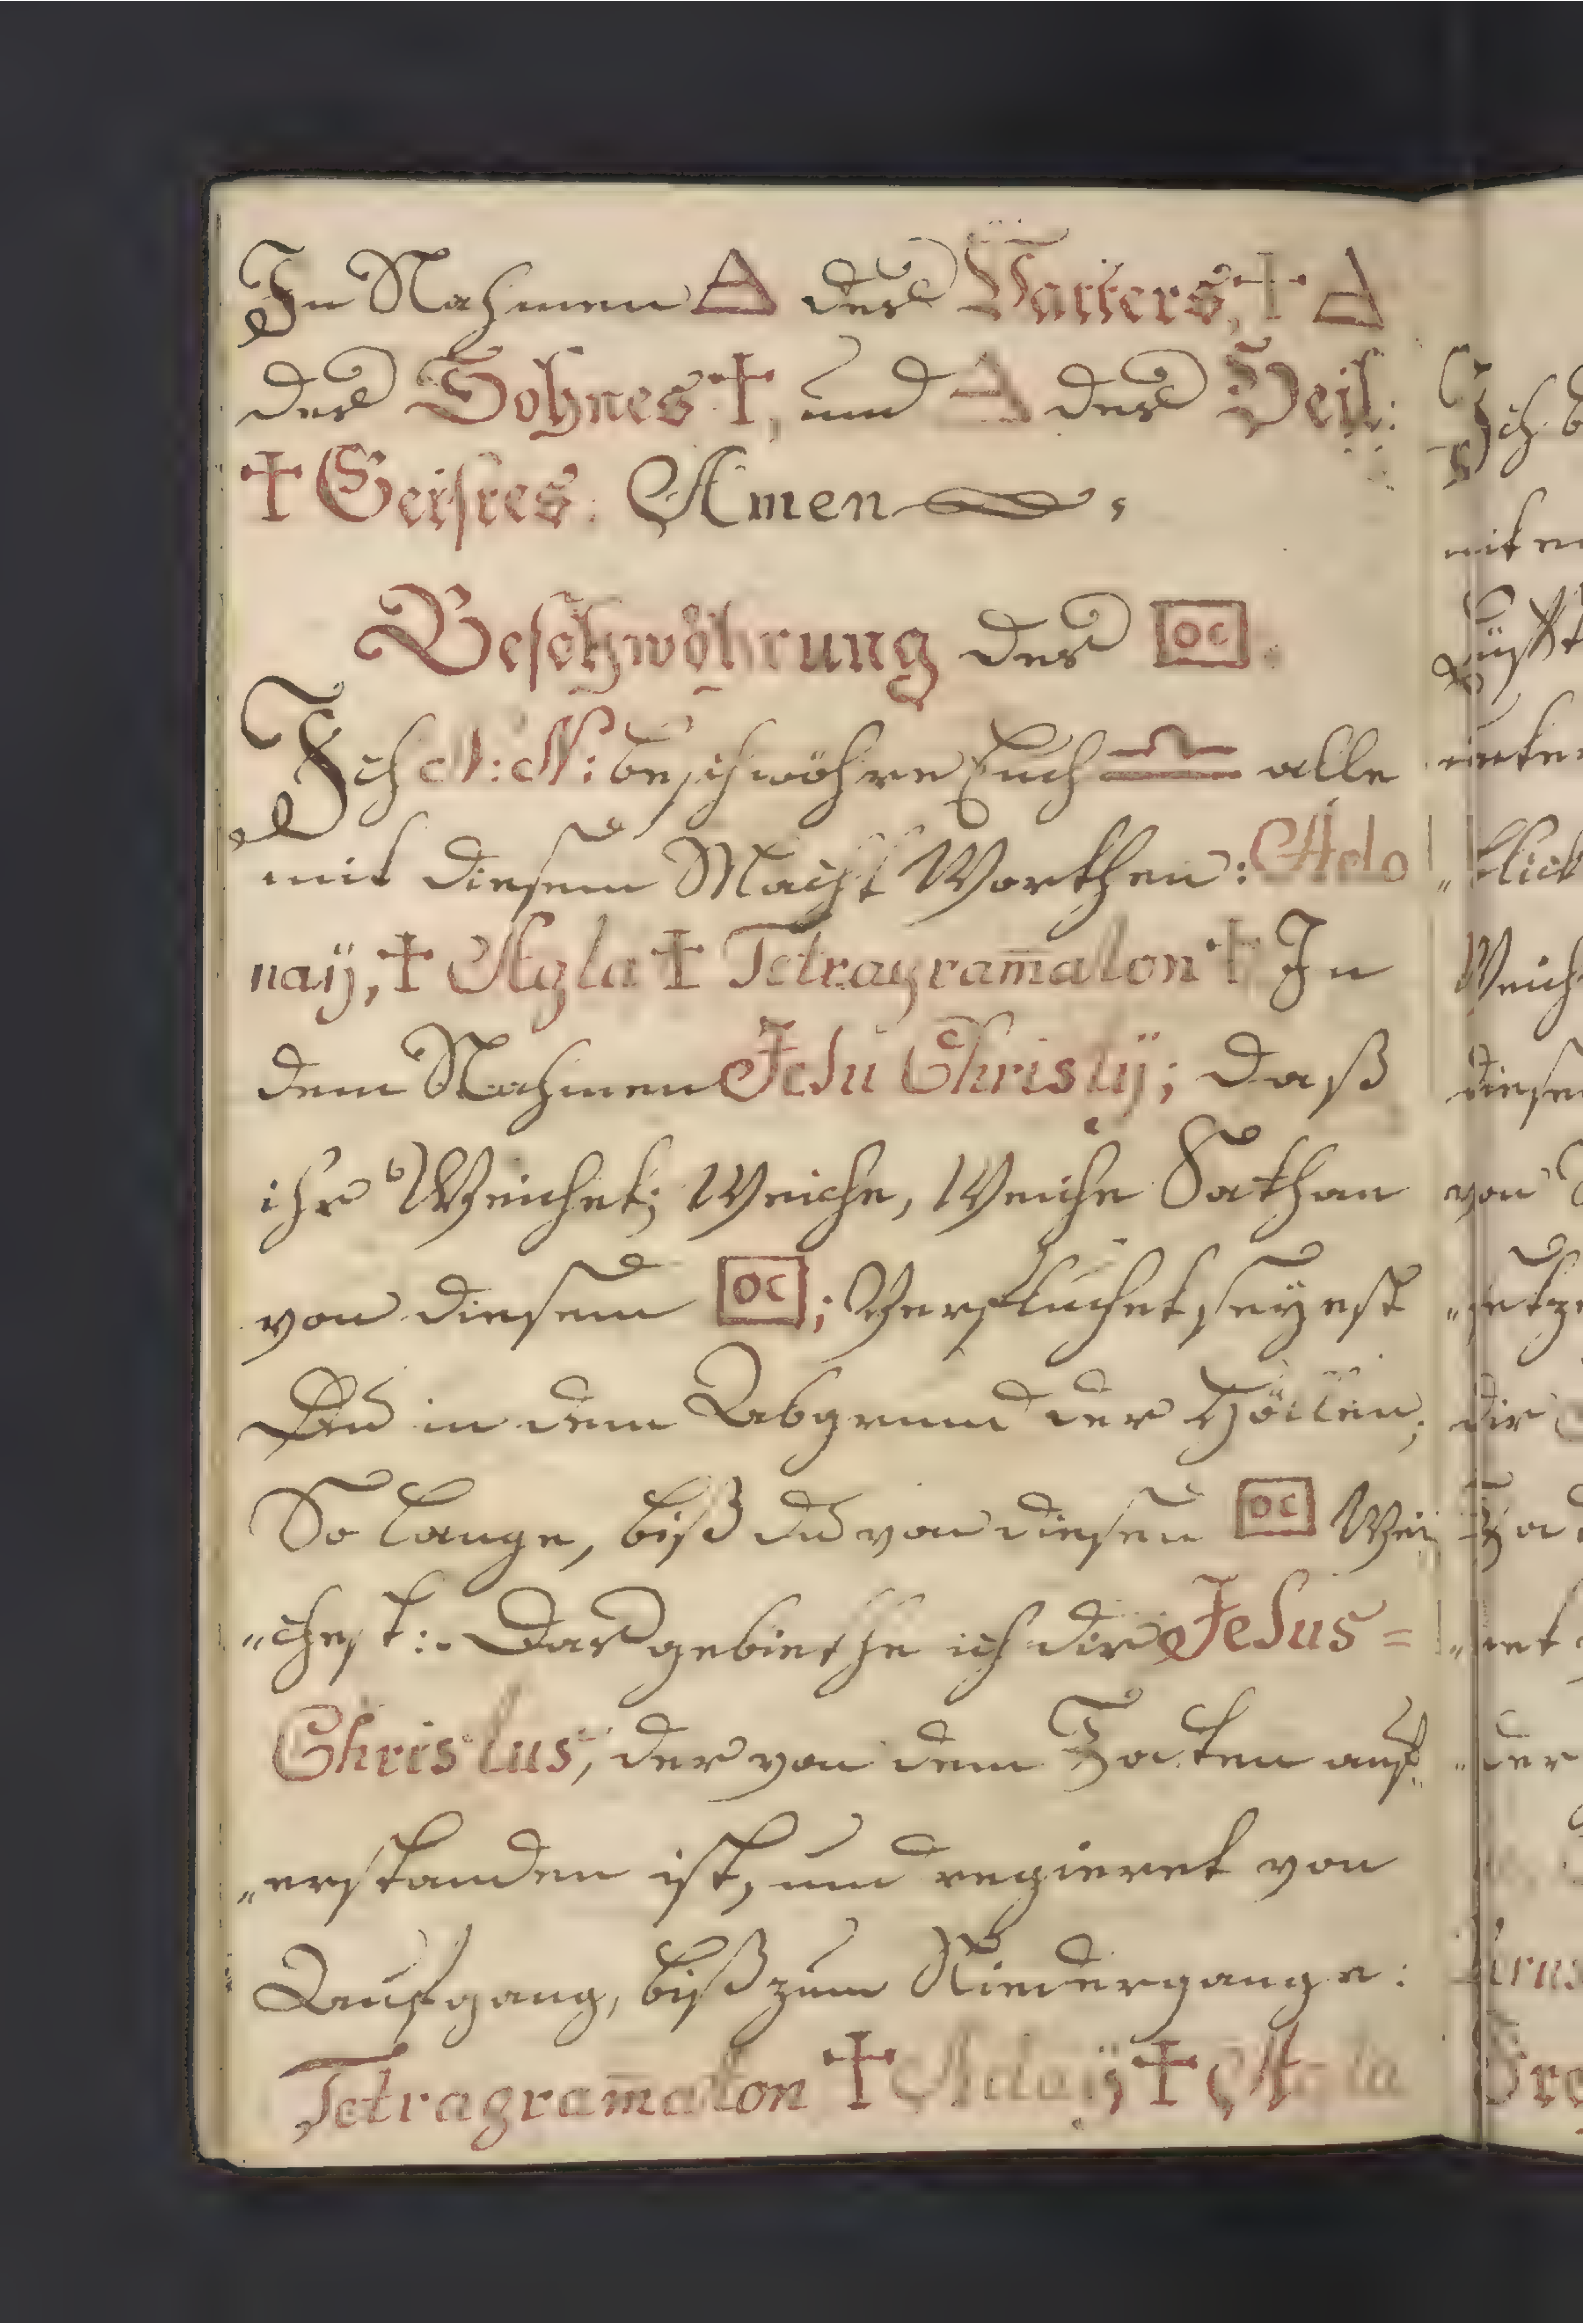 In Nahmen △ des Vatters, † △
des Sohnes †, und △ des Heil:
† Geistes. Amen
Beschwöhrung des OC.
Ich N: N: beschwöhre Euch alle
mit diesem Macht Worthen: Ado
naÿ, † Agla † Tetragram̄aton † In
dem Nahmen Jesu Christÿ; daß
ihr Weichet; Weiche, Weiche Sathan
von diesem OC; Verfluchet seÿest
Du in dem Abgrund der Höllen;
So lange, biß du von diesen OC Wei
„chest:. Das gebiethe ich dir Jesus =
Christus, der von dem Todten auf„
„erstanden ist, und regieret von
Aufgang, biß zum Niedergange:
Tetragram̄aton † † Agla